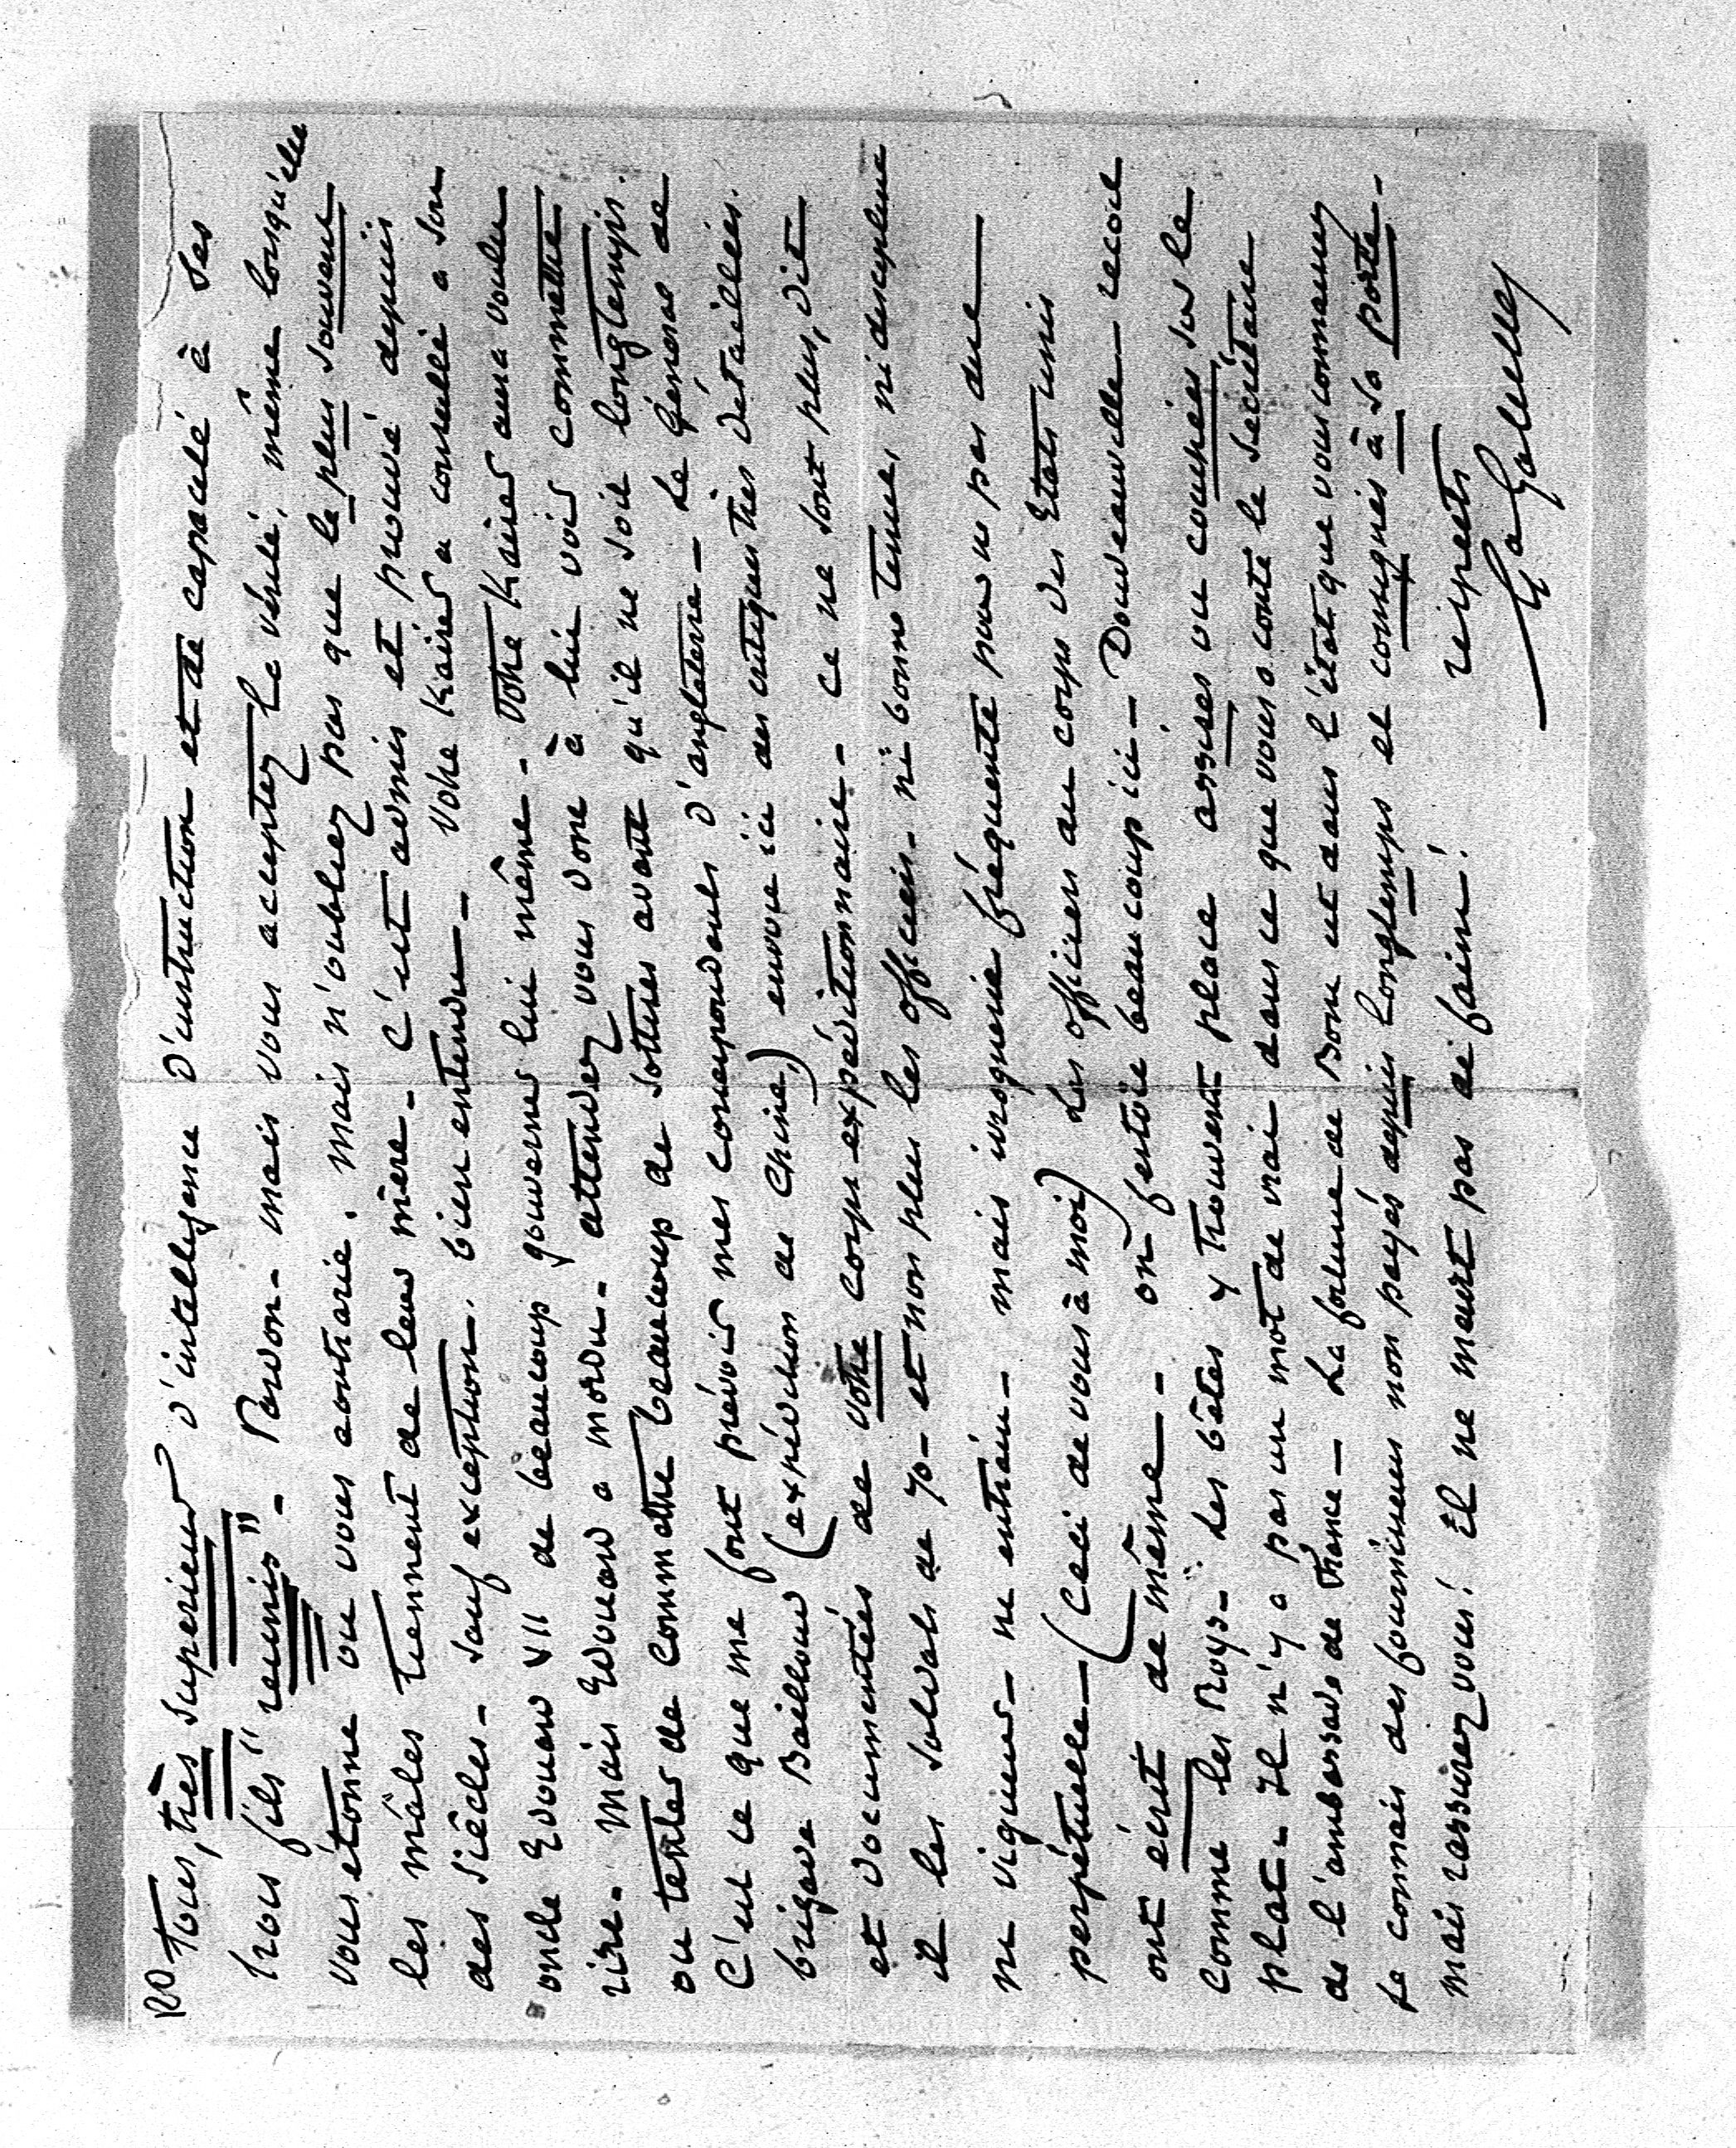 Tous, très supérieur d'intelligence d'instruction et de capacité à ses
trois fils "réunis" - Pardon - mais vous acceptez la vérité, même lorsqu'elle
vous étonne ou vous contrarie. Mais n'oubliez pas que le plus souvent
les mâles tiennent de leur mère - C'est admis et prouvé depuis
des siècles - sauf exception, bien entendu - Votre Kaiser a conseillé à son
oncle Edouard VII de beaucoup gouverner lui même - Votre Kaiser aura voulu
rire. Mais Edouard a mordu - attendez vous donc à lui voir commettre
ou tenter de commettre beaucoup de sottises avant qu'il ne soit longtemps.
C'est ce que me font prévoir mes correspondants d'angleterre - Le Général de
brigade Bailloud (expédition de Chine) envoie ici des critiques très détaillées
et documentées de votre corps expéditionnaire - ce ne sont plus, dit
il les soldats de 70 - et non plus les officiers - ni bonne tenue, ni discipline
ni vigueur - ni entrain - mais ivrognerie fréquente pour ne pas dire
perpétuelle - (ceci de vous à moi) Les officiers au corps des Etats unis
ont écrit de même - on festoie beaucoup ici - Doudeauville recoit
comme les Roys - Les bêtes y trouvent place assises ou coupées sur le
plat - Il n'y a pas un mot de vrai dans ce que vous a conté le Secrétaire
de l'ambassade de France - La fortune de Boni est dans l'état que vous connaissez
Je connais des fournisseurs non payés depuis longtemps et consignés à sa porte -
mais rassurez vous! Il ne meurt pas de faim!
respects